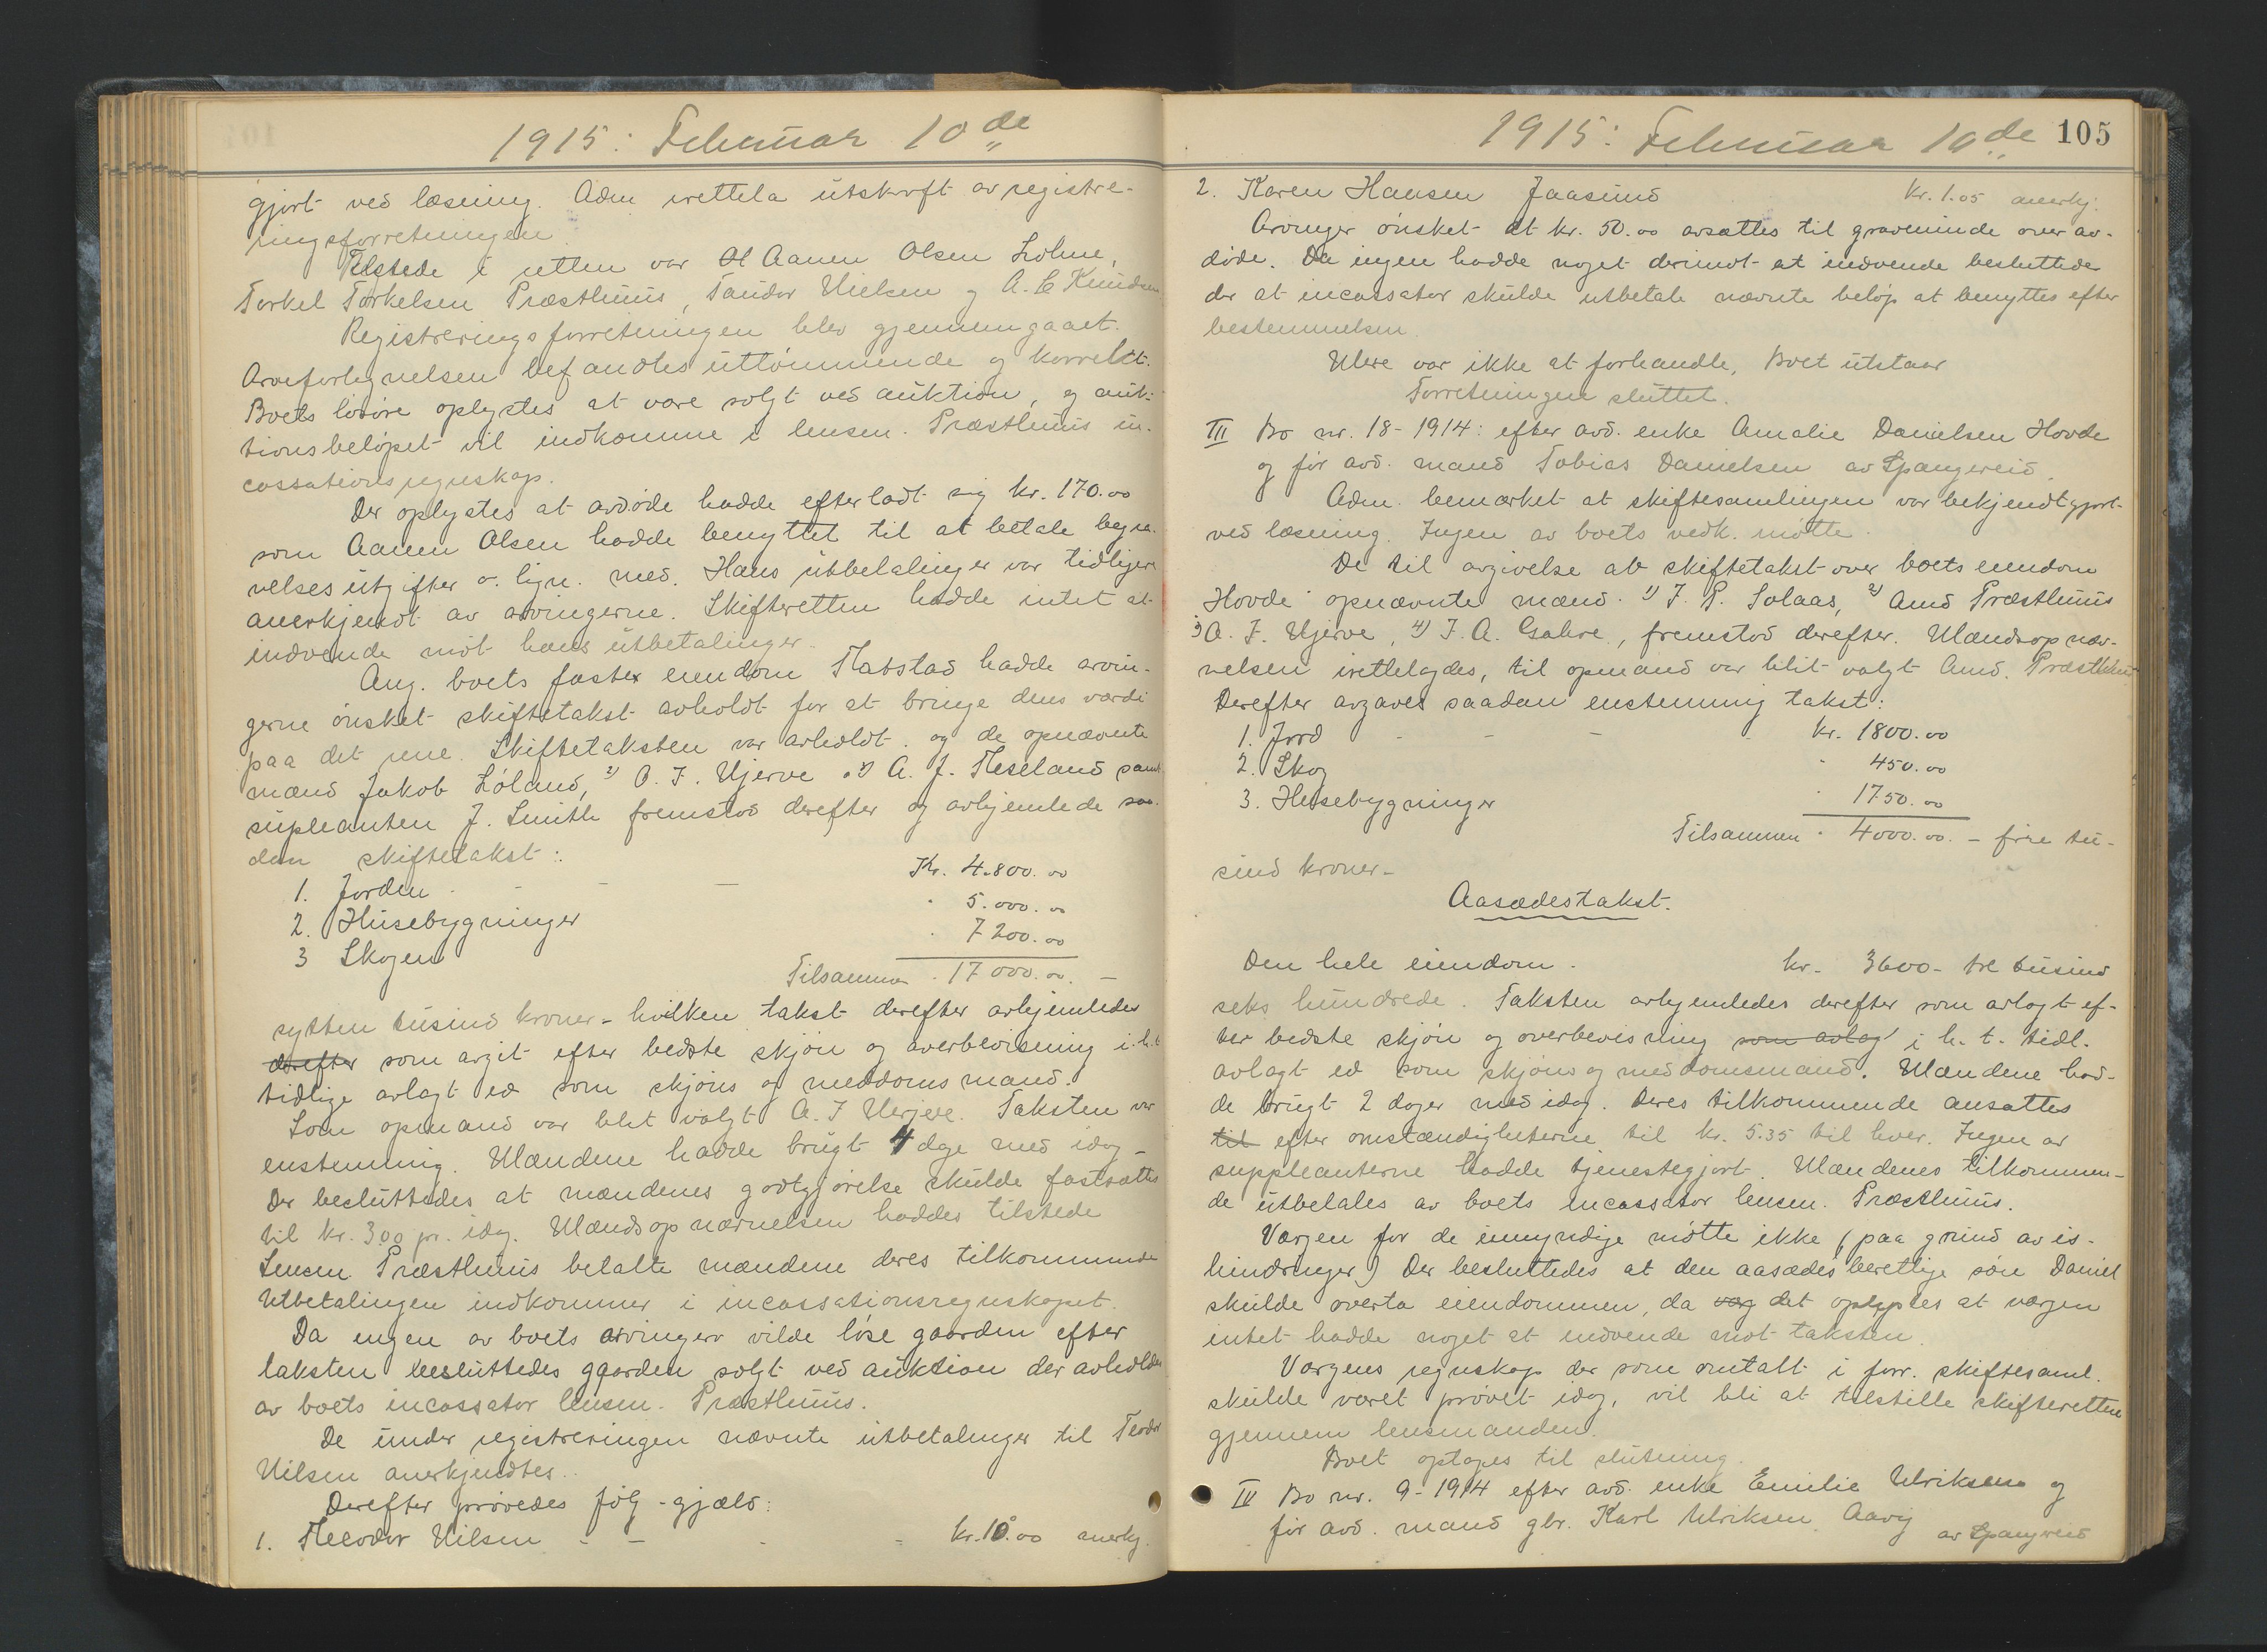 1915: Februar 10de
gjort ved læsning. Adm irettela utskrift av registre-
ringsforretningen.
Tilstede i retten var Aanen Olsen Lohne,
Torkel Torkelsen Præsthuus, Tandor Nielsen og A. C Knudsen
Registreringsforretningen blev gjennemgaaet.
Arveforlignelsen befandtes uttømmende og korrekt.
Boets løsøre oplystes at være solgt ved auktion, og auk-
tionsbeløpet vil indkomme i lensm. Præsthuus in-
cassationsregnskap.
Der oplystes at avdøde hadde efterladt sig kr. 170.00
som Aanen Olsen hadde benyttet til at betale begra-
velsesutgifter o. lign. med. Hans utbetalinger var tidligere
anerkjendt av arvingerne. Skifteretten hadde intet at
indvende mot hans utbetalinger.
Ang. boets faste eiendom hadde arvin-
gerne ønsket skiftetakst avholdt for at bringe dens værdi
paa det rene. Skiftetaksten var avholdt og de opnævnte
mænd Jakob Løland, 2) O. F. Njerve 3) A. J. Neseland samt
supleanten J. Smith fremstod derefter og avhjemlede saa-
dan skiftetakst:
1. Jorden - - - Kr. 4.800.00
2. Husebygninger " 5.000.00
3 Skogen " 7200.00
Tilsammen " 17000.00. -
sytten tusind kroner - hvilken takst derefter avhjemledes
derefter som avgit efter bedste skjøn og overbevisning i h.t
tidlige avlagt ed som skjøns og meddomsmand.
Som opmand var blit valgt A. F Njerve. Taksten var
enstemmig. Mændene hadde brugt 4 dage med idag -
Der besluttedes at mændenes godtgjørelse skulde fastsættes
til kr. 3.00 pr. idag. Mændsopnævnelsen haddes tilstede
Lensm. Præsthuus betalte mændene deres tilkommende
Utbetalingen indkommer i incassationsregnskapet.
Da ingen av boets arvinger vilde løse gaarden efter
taksten besluttedes gaarden solgt ved auktion der avholdes
av boets incassator lensm. Præsthuus.
De under registreringen nævnte utbetalinger til Teodor
Nilsen anerkjendtes.
Derefter prøvedes følg - gjæld:
1. Theodor Nilsen - - - - kr. 10.00 anerkj.
1915: Februar 10de 105
2. Karen Hansen Jaasund kr. 1.05 anerkj.
Arvinger ønsket at kr. 50.00 avsættes til gravminde over av-
døde. Da ingen hadde noget derimot at indvende besluttedes
der at incassator skulde utbetale nævnte beløp at benyttes efter
bestemmelsen.
Mere var ikke at forhandle, Boet utstaar
Forretningen sluttet.
III Bo nr. 18-1914: efter avd. enke Amalie Danielsen Hovde
og før avd. mand Tobias Danielsen av Spangereid.
Adm. bemærket at skiftesamlingen var bekjendtgjort
ved læsning. Ingen av boets vedk. møtte.
De til avgivelse av skiftetakst over boets eiendom
Hovde opnævnte mænd 1) J. P. Solaas, 2) Amd Præsthuus
3) A. F. Njerve, 4) J. A. Gahre, fremstod derefter. Mændsopnæv-
nelsen irettelagdes, til opmand var blit valgt Amd. Præsthuus
Derefter avgaves saadan enstemmig takst:
1. Jord - - - kr. 1800.00
2. Skog " 450.00
3. Husebygninger " 1750.00
Tilsammen " 4000.00. - fire tu-
sind kroner -
Aasædestakst.
Den hele eiendom. kr. 3600 - tre tusind
seks hundrede. Taksten avhjemledes derefter som avlagt ef-
ter bedste skjøn og overbevisning som avlag i h. t. tidl.
avlagt ed som skjøns og meddomsmand. Mændene had-
de brugt 2 dager med idag. Deres tilkommende ansattes
til efter omstændigheterne til kr. 5.35 til hver. Ingen av
suppleanterne hadde tjenestegjort. Mændenes tilkommen-
de utbetales av boets incassator lensm. Præsthuus.
Værgen for de umyndige møtte ikke (paa grund av is-
hindringer) Der besluttedes at den aasædesberettige søn Daniel
skulde overta eiendommen, da værg det oplystes at værgen
intet hadde noget at indvende mot taksten.
Værgens regnskap der som omtalt i forr. skiftesaml.
skulde været prøvet idag, vil bli at tilstille skifteretten
gjennem lensmanden.
Boet optages til slutning.
IV Bo nr. 9-1914 efter avd. enke Emilie Ulriksen og
før avd. mand gbr. Karl Ulriksen Aavig av Spangereid